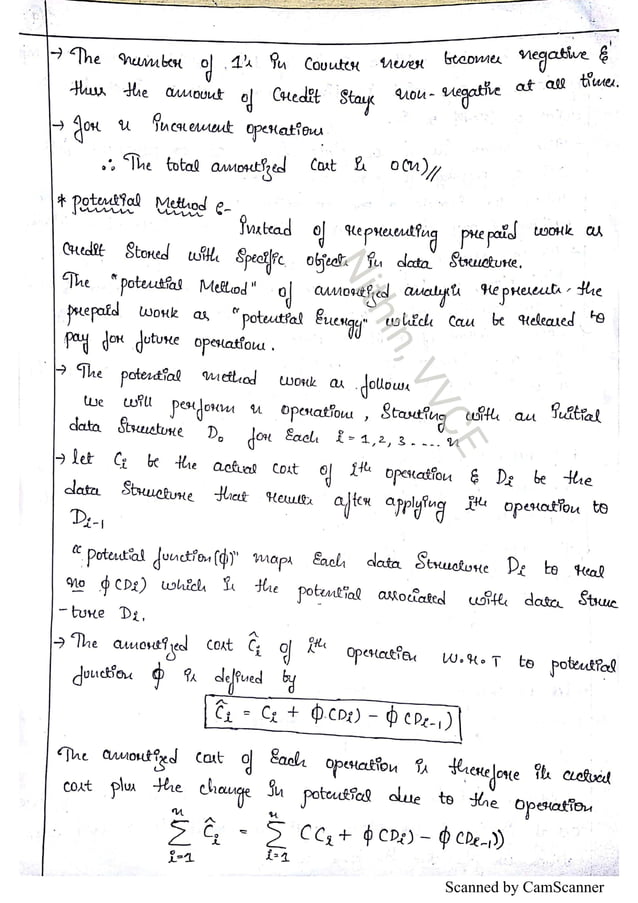 → The number of 1's in Counter never becomes negative &
thus the amount of Credit Stays non-negative at all times.
→ for n increment operations
∴ The total amortized Cost is O(n)//
* potential Method :-
Instead of representing prepaid work as
Credit Stored with Specific objects in data Structure.
The "potential Method" of amortized analysis represents the
prepaid work as "potential Energy" which can be released to
pay for future operations.
→ The potential method work as follows
we will perform n operations, Starting with an Initial
data Structure D₀ for Each i = 1, 2, 3 .... n
→ let Cᵢ be the actual cost of iᵗʰ operation & Dᵢ be the
data Structure that results after applying iᵗʰ operation to
Dᵢ₋₁
"potential function(ϕ)" maps Each data Structure Dᵢ to real
no ϕ(Dᵢ) which is the potential associated with data Struc
-ture Dᵢ.
→ The amortized cost Ĉᵢ of iᵗʰ operation W.r.T to potential
function ϕ is defined by
Ĉᵢ = Cᵢ + ϕ(Dᵢ) - ϕ(Dᵢ₋₁)
The amortized cost of Each operation is therefore its actual
cost plus the change in potential due to the operation
n∑i=1 Ĉᵢ = n∑i=1 (Cᵢ + ϕ(Dᵢ) - ϕ(Dᵢ₋₁))
Nithin, VVCE
Scanned by CamScanner